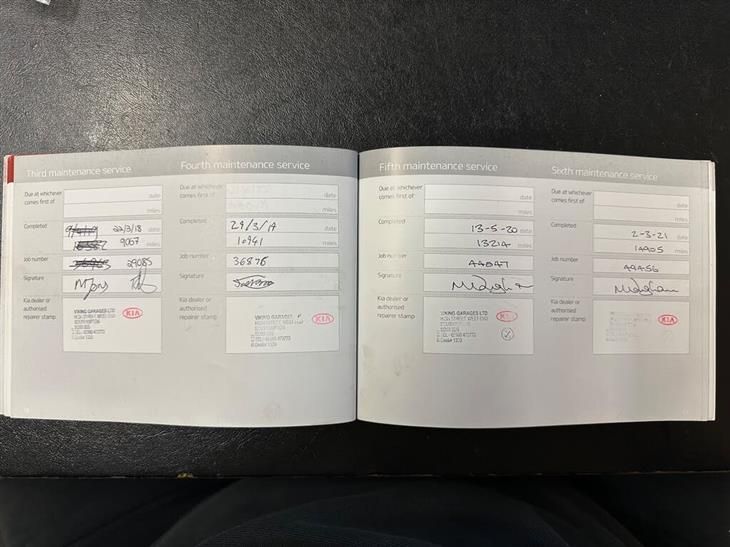 Third maintenance service
Due at whichever
comes first of
date
miles
Completed
22/3/18 date
9067 miles
Job number
29085
Signature
Kia dealer or
authorised
repairer stamp
VIKING GARAGES LTD
HIGH STREET WEST END
SOUTHAMPTON
KIA
Fourth maintenance service
Due at whichever
comes first of
date
miles
Completed
29/3/19 date
10941 miles
Job number
36876
Signature
Kia dealer or
authorised
repairer stamp
VIKING GARAGES
HIGH STREET WEST END
SOUTHAMPTON
KIA
Fifth maintenance service
Due at whichever
comes first of
date
miles
Completed
13-5-20 date
13219 miles
Job number
44847
Signature
Kia dealer or
authorised
repairer stamp
VIKING GARAGES LTD
HIGH STREET WEST END
SOUTHAMPTON
KIA
Sixth maintenance service
Due at whichever
comes first of
date
miles
Completed
2-3-21 date
14905 miles
Job number
49456
Signature
Kia dealer or
authorised
repairer stamp
KIA